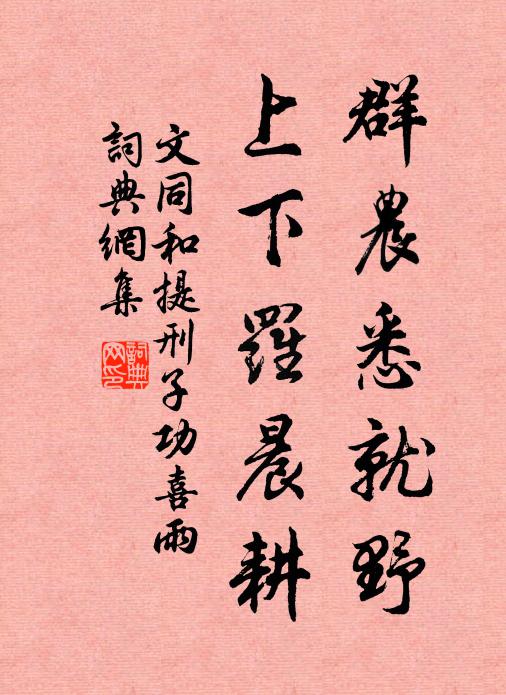 群農悉就野
上下羅晨耕
文同和提刑子功喜雨
詞典網集
詞典网印